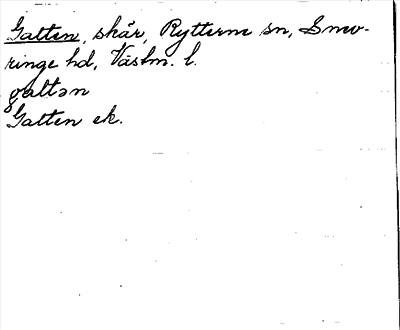 Galten, skär, Rytterne sn, Snev-
ringe hd, Västm. l.
galtən
Galten ek.